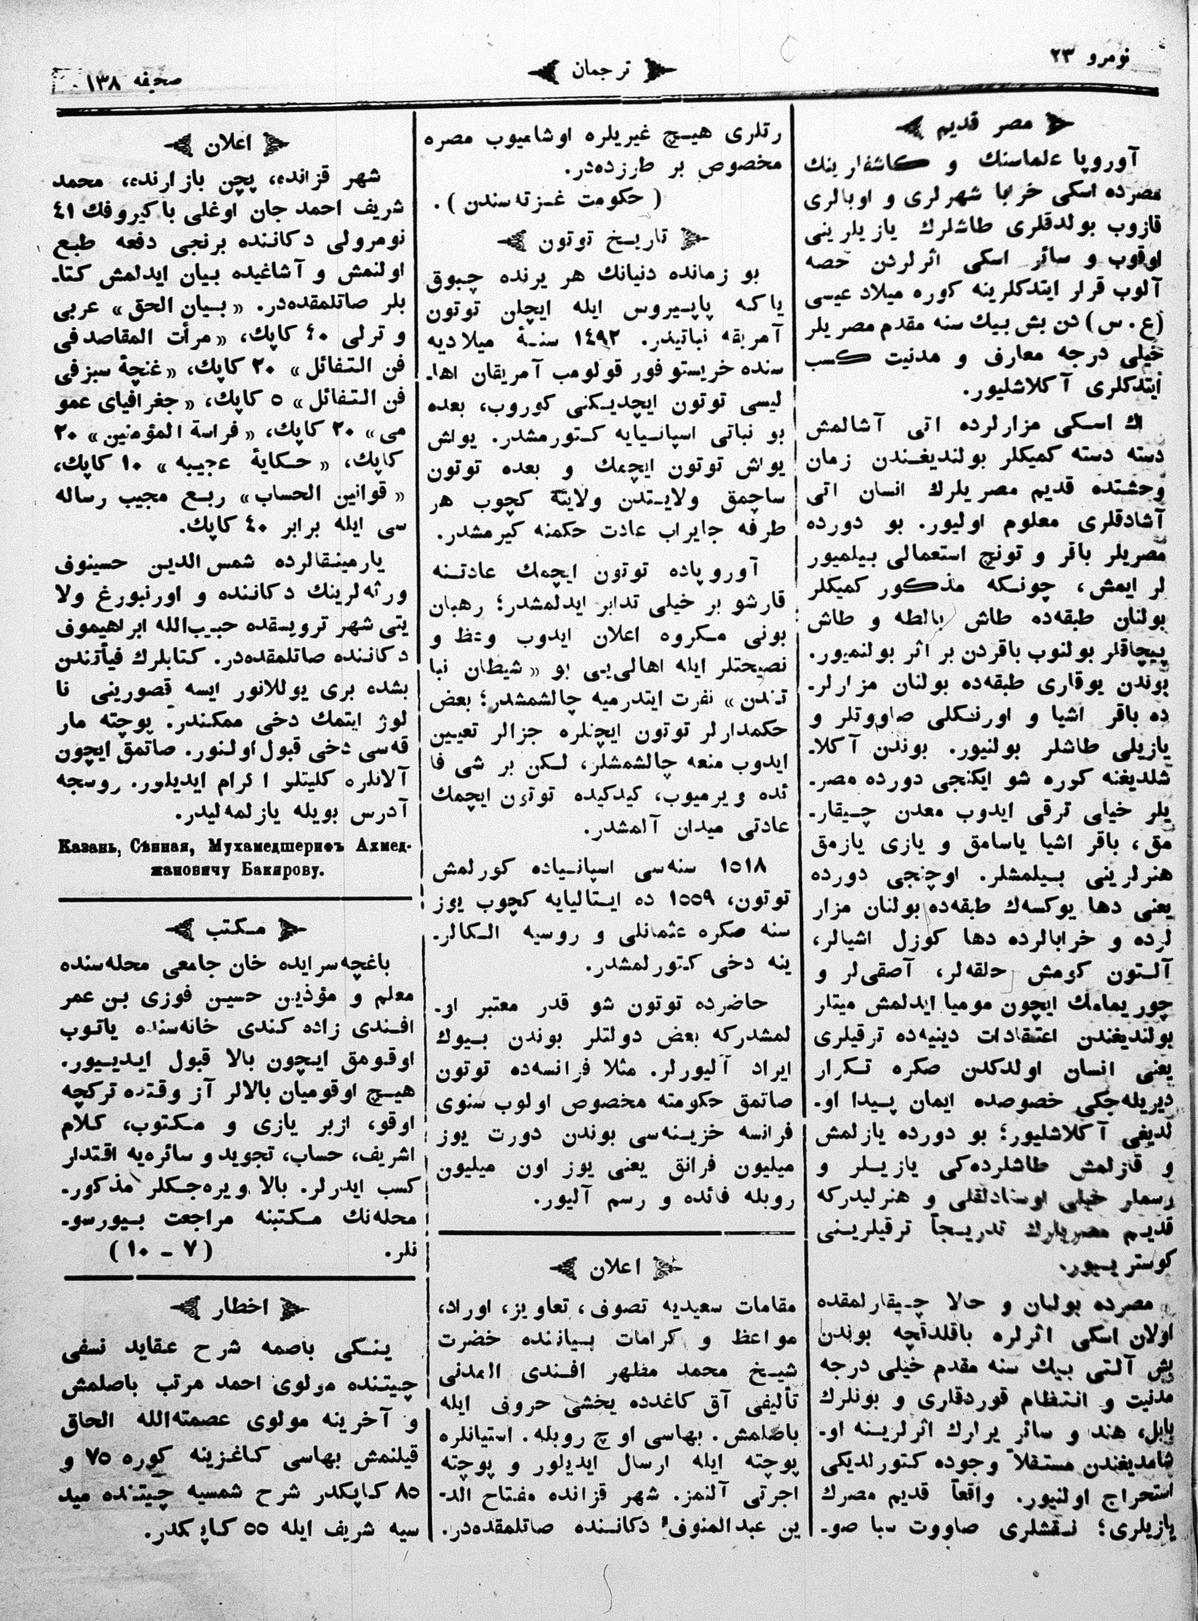 نومرو ٢٣
ترجمان
صحيفه ١٣٨
مصر قديم
آوروپا علماسنك و كاشفلرينك
مصرده اسكى خربا شهرلرى و اوبالرى
قازوب بولدقلرى طاشلرك يازيلرينى
اوقوب و سائر اسكى اثرلردن حصه
آلوب قرلر ايتدكلرينه كوره ميلاد عيسى
(ع. س) دن بش بيك سنه مقدم مصريلر
خيلى درجه معارف و مدنيت كسب
ايتدكلرى آكلاشليور.
اك اسكى مزارلرده اتى آشالمش
دسته دسته كميكلر بولنديغندن زمان
وحشتده قديم مصريلرك انسان اتى
آشادقلرى معلوم اوليور. بو دورده
مصريلر باقر و تونچ استعمالى بيلميور
لر ايمش، چونكه مذكور كميكلر
بولنان طبقه‌ده طاش بالطه و طاش
پيچاقلر بولنوب باقردن بر اثر بولنميور.
بوندن يوقارى طبقه‌ده بولنان مزارلر-
ده باقر اشيا و اورنكلى صاووتلر و
يازيلى طاشلر بولنيور. بوندن آكلا-
شلديغنه كوره شو ايكنجى دورده مصر-
يلر خيلى ترقى ايدوب معدن چيقار-
مق، باقر اشيا ياسامق و يازى يازمق
هنرلرينى بيلمشلر. اوچنجى دورده
يعنى دها يوكسه‌ك طبقه‌ده بولنان مزار
لرده و خرابالرده دها كوزل اشيالر،
آلتون كومش حلقه‌لر، آصقى‌لر و
چوريمامك ايچون موميا ايدلمش ميتلر
بولنديغندن اعتقادات دينيه‌ده ترقيلرى
يعنى انسان اولدكدن صكره تكرار
ديريله‌جكى خصوصده ايمان پيدا او-
لديغى آكلاشليور؛ بو دورده يازلمش
و قازلمش طاشلرده‌كى يازيلر و
رسملر خيلى اوستادلقلى و هنرليدركه
قديم مصريلرك تدريجاً ترقيلرينى
كوستريور.
مصرده بولنان و حالا چيقارلمقده
اولان اسكى اثرلره باقلدقچه بوندن
بش آلتى بيك سنه مقدم خيلى درجه
مدنيت و انتظام قوردقلرى و بونلرك
بابل، هند و سائر يرلرك اثرلرينه او-
شامديغندن مستقلاً وجوده كتورلديكى
استخراج اولنيور. واقعاً قديم مصرك
يازيلرى؛ نقشلرى صاووت سبا صو-
رتلرى هيچ غيريلره اوشاميوب مصره
مخصوص بر طرزده‌در.
(حكومت غزته سندن).
تاريخ توتون
بو زمانده دنيانك هر يرنده چبوق
ياكه پاپيروس ايله ايچلن توتون
آمريقه نباتيدر. ١٤٩٢ سنۀ ميلاديه
سنده خريستوفور قولومب آمريقان اها-
ليسى توتون ايچديكنى كوروب، بعده
بو نباتى اسپانيايه كتورمشدر. يواش
يواش توتون ايچمك و بعده توتون
ساچمق ولايتدن ولايته كچوب هر
طرفه جايراب عادت حكمنه كيرمشدر.
آوروپاده توتون ايچمك عادتنه
قارشو بر خيلى تدابر ايدلمشدر؛ رهبان
بونى مكروه اعلان ايدوب وعظ و
نصيحتلر ايله اهالى‌يى بو «شيطان نبا
تندن» نفرت ايتدرميه چالشمشدر؛ بعض
حكمدارلر توتون ايچنلره جزالر تعيين
ايدوب منعه چالشمشلر، لكن بر شى فا
ئده ويرميوب، كيدكيده توتون ايچمك
عادتى ميدان آلمشدر.
١٥١٨ سنه‌سى اسپانياده كورلمش
توتون، ١٥٥٩ ده ايتاليايه كچوب يوز
سنه صكره عثمانلى و روسيه الكالر-
ينه دخى كتورلمشدر.
حاضرده توتون شو قدر معتبر او-
لمشدركه بعض دولتلر بوندن بيوك
ايراد آليورلر. مثلا فرانسه‌ده توتون
صاتمق حكومته مخصوص اولوب سنوى
فرانسه خزينه‌سى بوندن دورت يوز
ميليون فرانق يعنى يوز اون ميليون
روبله فائده و رسم آليور.
اعلان
مقامات سعيديه تصوف، تعاويز، اوراد،
مواعظ و كرامات بياننده خضرت
شيخ محمد مظهر افندى المدنى
تأليفى آق كاغدده يخشى حروف ايله
باصلمش. بهاسى اوچ روبله. استيانلره
پوچته ايله ارسال ايديلور و پوچته
اجرتى آلنمز. شهر قزانده مفتاح الد-
ين عبدالمنوف دكاننده صاتلمقده‌در.
اعلان
شهر قزانده، پچن بازارنده، محمد
شريف احمد جان اوغلى باكيروفك ٤١
نومرولى دكاننده برنجى دفعه طبع
اولنمش و آشاغيده بيان ايدلمش كتا-
بلر صاتلمقده‌در. «بيان الحق» عربى
و تركى ٤٠ كاپك، «مرأت المقاصد فى
فن التفائل» ٢٠ كاپك، «غنچۀ سبز فى
فن التفائل» ٥ كاپك، «جغرافياى عمو
مى» ٢٠ كاپك، «فراسة المؤمنين» ٢٠
كاپك، «حكايۀ عجيبه» ١٠ كاپك،
«قوانين الحساب» ربع مجيب رساله
سى ايله برابر ٤٠ كاپك.
يارمينقالرده شمس الدين حسينوف
ورثه‌لرينك دكاننده و اورنبورغ ولا
يتى شهر ترويسقده حبيب‌الله ابراهيموف
دكاننده صاتلمقده‌در. كتابلرك فيأتندن
بشده برى يوللانور ايسه قصورينى نا
لوژ ايتمك دخى ممكندر. پوچته مار
قه‌سى دخى قبول اولنور. صاتمق ايچون
آلانلره كليتلو اكرام ايديلور. روسجه
آدرس بويله يازلمه‌ليدر.
Казань, Сѣнная, Мухамедшерифъ Ахмед-
жановичу Бакирову.
مكتب
باغچه‌سرايده خان جامعى محله‌سنده
معلم و مؤذين حسين فوزى بن عمر
افندى زاده كندى خانه‌سنده ياتوب
اوقومق ايچون بالا قبول ايديور.
هيچ اوقوميان بالالر آز وقتده تركچه
اوقو، ازبر يازى و مكتوب، كلام
اشريف، حساب، تجويد و سائره‌يه اقتدار
كسب ايدرلر. بالا ويره‌جكلر مذكور
محله‌نك مكتبنه مراجعت بيورسو-
نلر. (٧ - ١٠)
اخطار
ينكى باصمه شرح عقايد نسفى
چيتنده مولوى احمد مرتب باصلمش
و آخرينه مولوى عصمته‌الله الحاق
قيلنمش بهاسى كاغزينه كوره ٧٥ و
٨٥ كاپكدر شرح شمسيه چيتنده ميد
سيه شريف ايله ٥٥ كاپكدر.